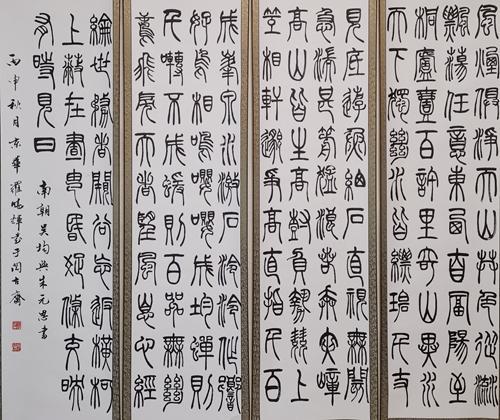 風煙俱淨天山共色從流
飄蕩任意東西自富陽至
桐廬壹百許里奇山異水
天下獨絕水皆縹碧千丈
見底游魚細石直視無礙
急湍甚箭猛浪若奔夾嶂
高山皆生寒樹負勢競上
互相軒邈爭高直指千百
成峯泉水激石泠泠作響
好鳥相鳴嚶嚶成均蟬則
千囀不窮猨則百叫無絕
鳶飛戾天者望峯息心經
綸世務者闚谷忘返橫柯
上蔽在晝猶昏疏條交映
有時見日
南朝吴均與朱元思書
丙申秋月京華羅輝書于閱古齋